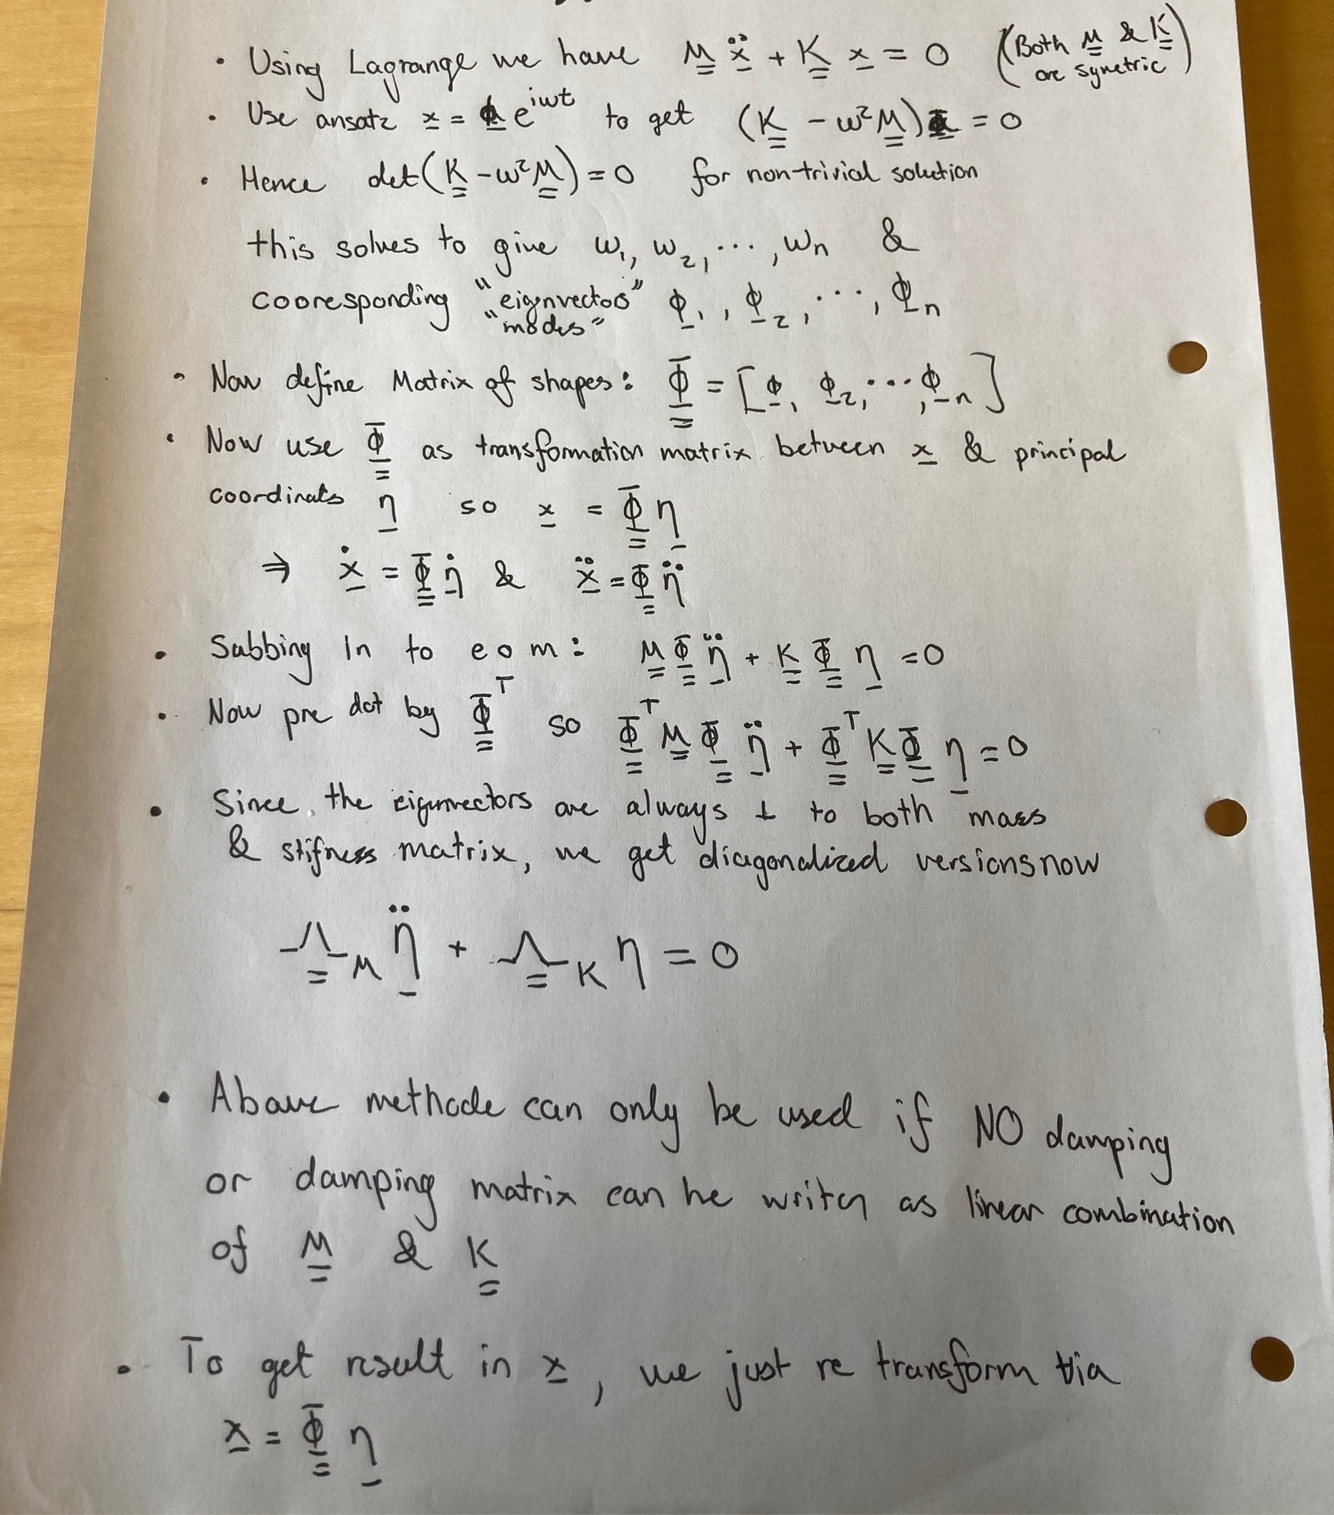 • Using Lagrange we have M ẍ + K x = 0 (Both M & K are symetric)
• Use ansatz x = ϕ e^{iωt} to get (K - ω²M)ϕ = 0
• Hence det(K - ω²M) = 0 for non-trivial solution
this solves to give ω₁, ω₂, ..., ωn &
cooresponding "eignvectos" "modes" ϕ₁, ϕ₂, ..., ϕn
• Now define Matrix of shapes: Φ = [ϕ₁ ϕ₂, ..., ϕn]
• Now use Φ as transformation matrix between x & principal
coordinats η so x = Φ η
⇒ ẋ = Φ η̇ & ẍ = Φ η̈
• Subbing in to eom: M Φ η̈ + K Φ η = 0
• Now pre dot by Φᵀ so Φᵀ M Φ η̈ + Φᵀ K Φ η = 0
• Since the eigenvectors are always ⊥ to both mass
& stifness matrix, we get diagonalized versions now
Λ_M η̈ + Λ_K η = 0
• Above methode can only be used if NO damping
or damping matrix can be writen as linear combination
of M & K
• To get result in x, we just re transform via
x = Φ η